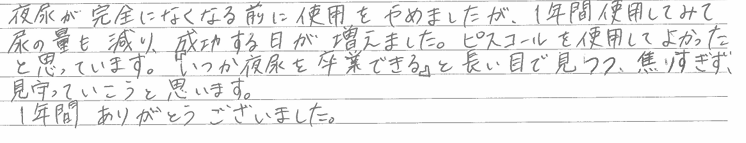 夜尿が完全になくなる前に使用をやめましたが、1年間使用してみて
尿の量も減り、成功する日が増えました。ピスコールを使用してよかった
と思っています。『いつか夜尿を卒業できる』と長い目で見つつ、焦りすぎず、
見守っていこうと思います。
1年間 ありがとうございました。